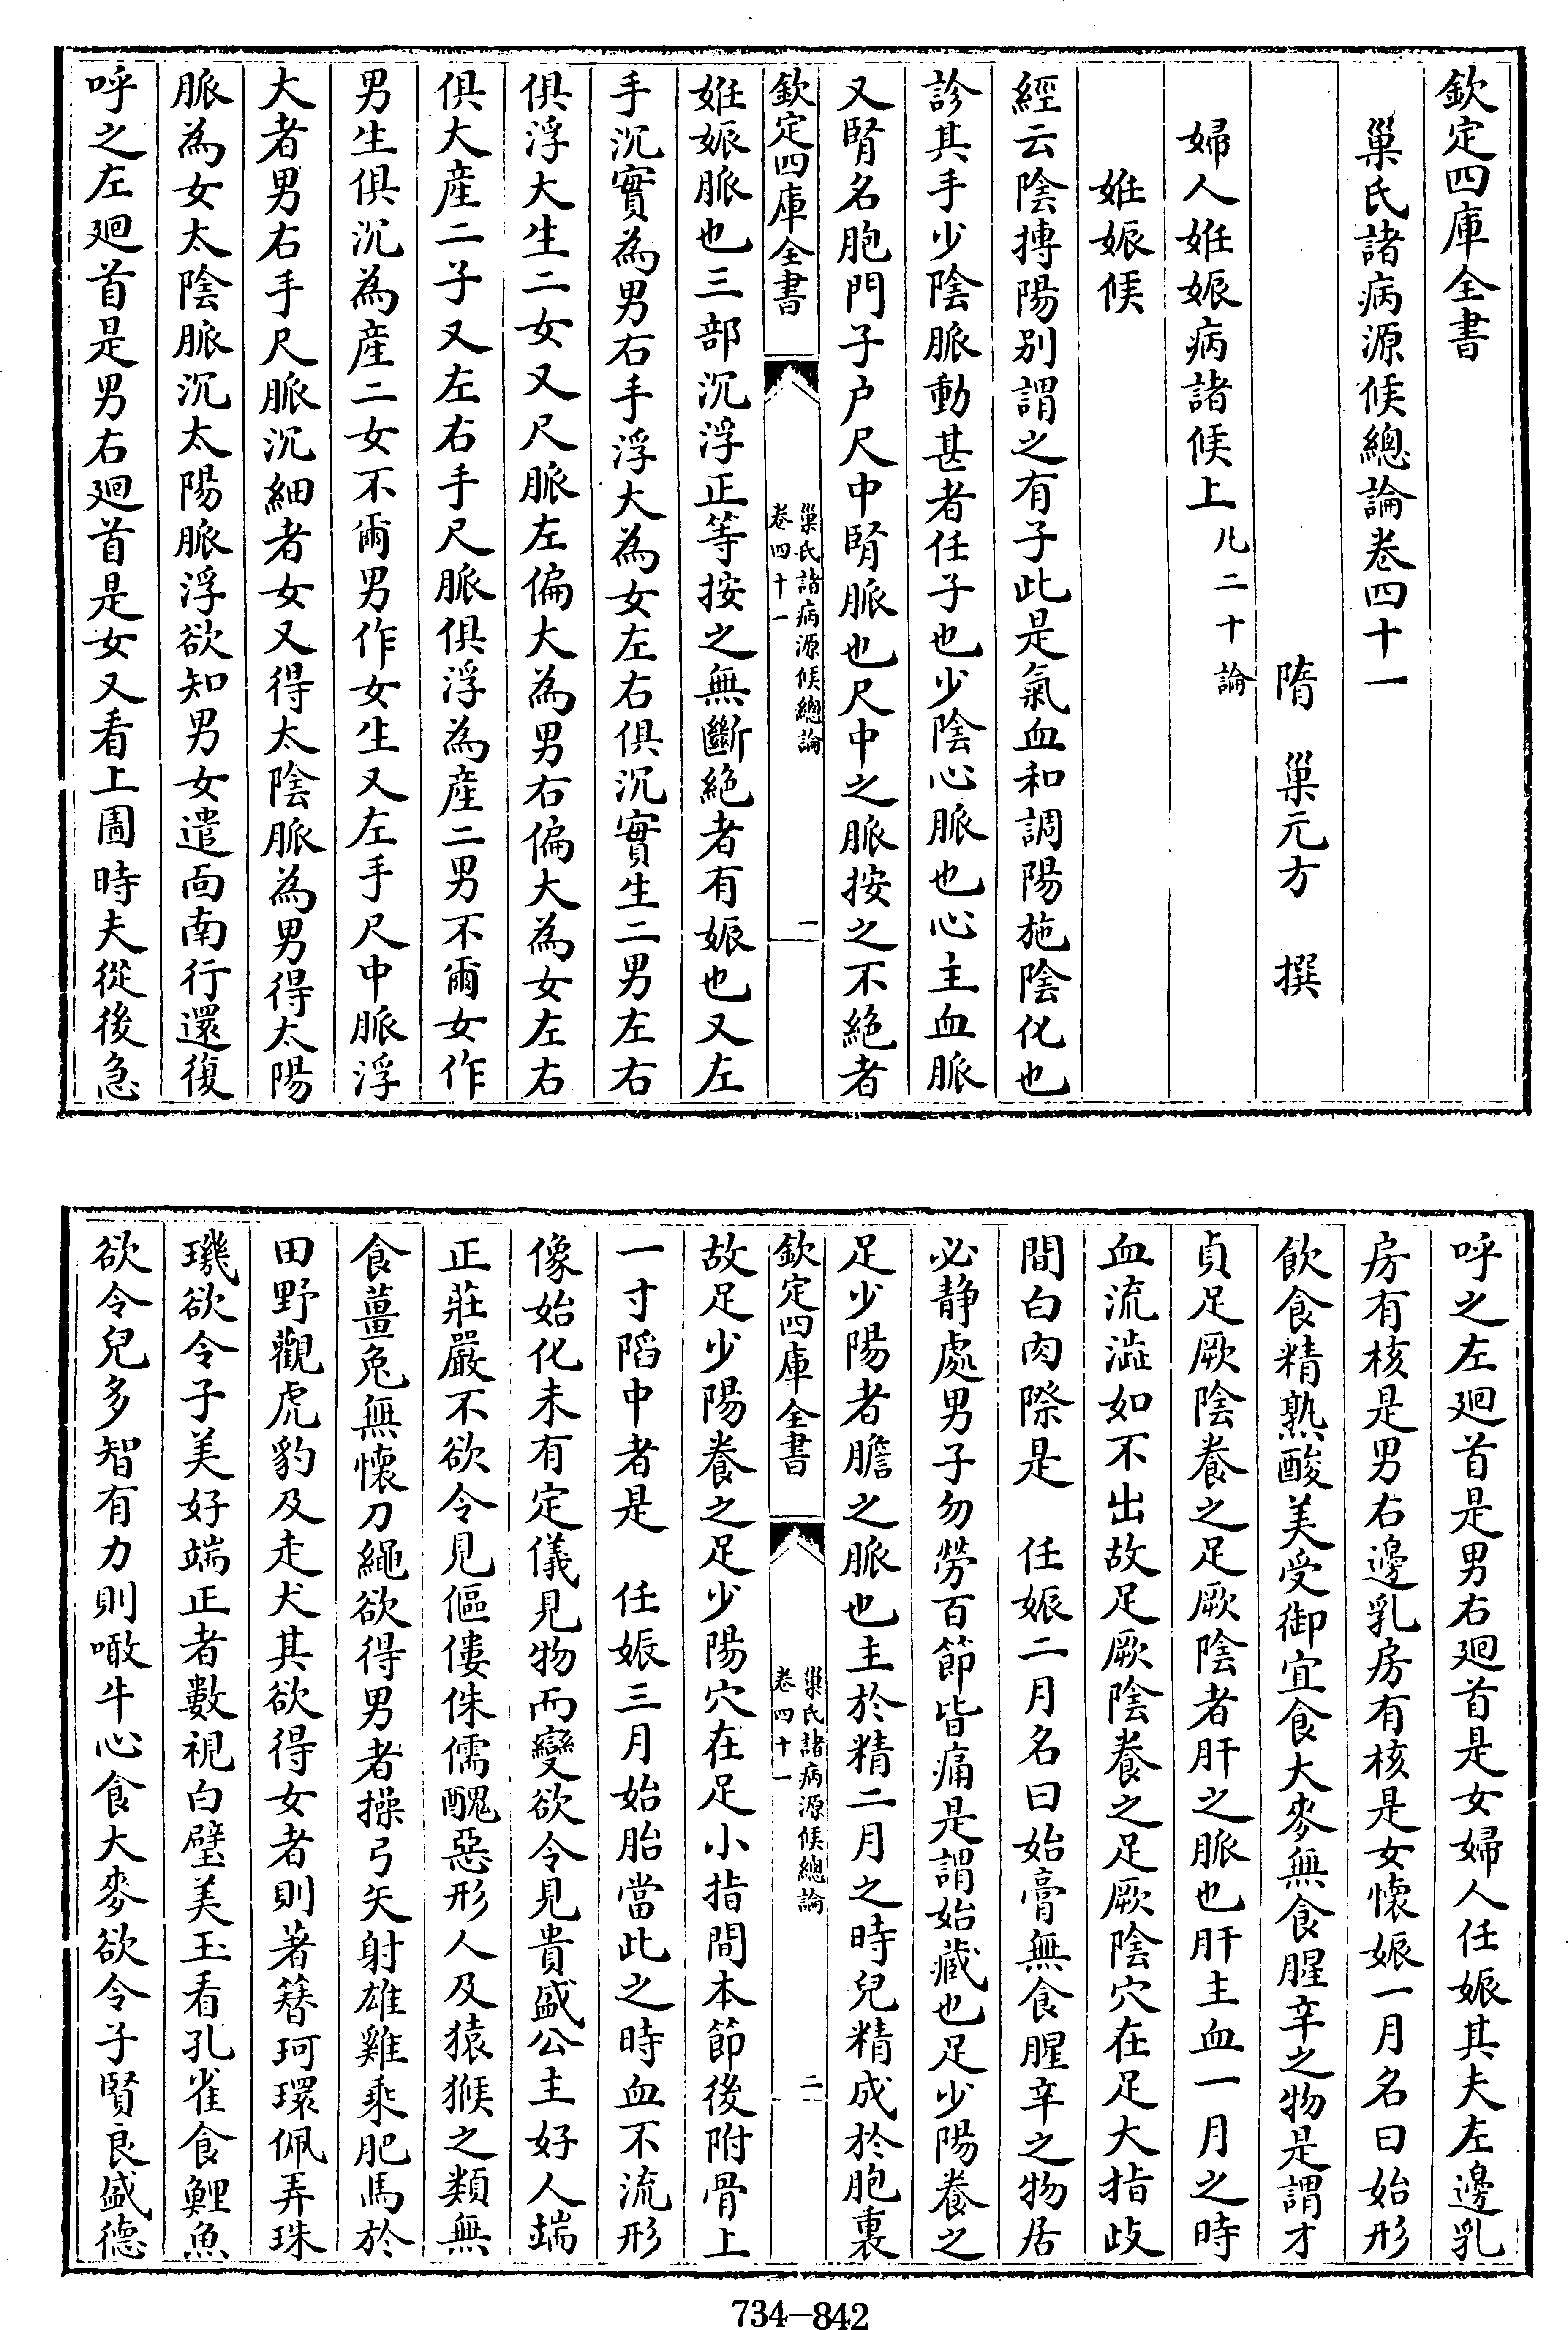 欽定四庫全書
巢氏諸病源候總論卷四十一
隋 巢元方 撰
婦人姙娠病諸候上凡二十論
姙娠候
經云陰搏陽别謂之有子此是氣血和調陽施陰化也
診其手少陰脈動甚者任子也少陰心脈也心主血脈
又腎名胞門子户尺中腎脈也尺中之脈按之不絶者
欽定四庫全書
巢氏諸病源候總論
卷四十一
一
姙娠脈也三部沉浮正等按之無斷絶者有娠也又左
手沉實為男右手浮大為女左右俱沉實生二男左右
俱浮大生二女又尺脈左偏大為男右偏大為女左右
俱大産二子又左右手尺脈俱浮為産二男不爾女作
男生俱沉為産二女不爾男作女生又左手尺中脈浮
大者男右手尺脈沉細者女又得太陰脈為男得太陽
脈為女太陰脈沉太陽脈浮欲知男女遣面南行還復
呼之左廻首是男右廻首是女又看上圊時夫從後急
呼之左廻首是男右廻首是女婦人任娠其夫左邊乳
房有核是男右邊乳房有核是女懷娠一月名曰始形
飲食精熟酸美受御宜食大麥無食腥辛之物是謂才
貞足厥陰養之足厥陰者肝之脈也肝主血一月之時
血流澁如不出故足厥陰養之足厥陰穴在足大指歧
間白肉際是 任娠二月名曰始膏無食腥辛之物居
必静處男子勿勞百節皆痛是謂始藏也足少陽養之
足少陽者膽之脈也主於精二月之時兒精成於胞裏
欽定四庫全書
巢氏諸病源候總論
卷四十一
二
故足少陽養之足少陽穴在足小指間本節後附骨上
一寸陷中者是 任娠三月始胎當此之時血不流形
像始化未有定儀見物而變欲令見貴盛公主好人端
正莊嚴不欲令見傴僂侏儒醜惡形人及猿猴之類無
食薑兔無懷刀繩欲得男者操弓矢射雄雞乘肥馬於
田野觀虎豹及走犬其欲得女者則著簪珂環佩弄珠
璣欲令子美好端正者數視白璧美玉看孔雀食鯉魚
欲令兒多智有力則噉牛心食大麥欲令子賢良盛德
734-842